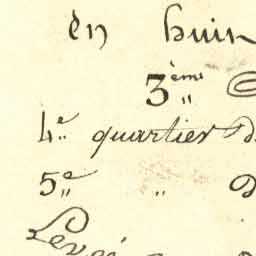 en huin
3ème „
4e quartier d
5e „ d
Levé